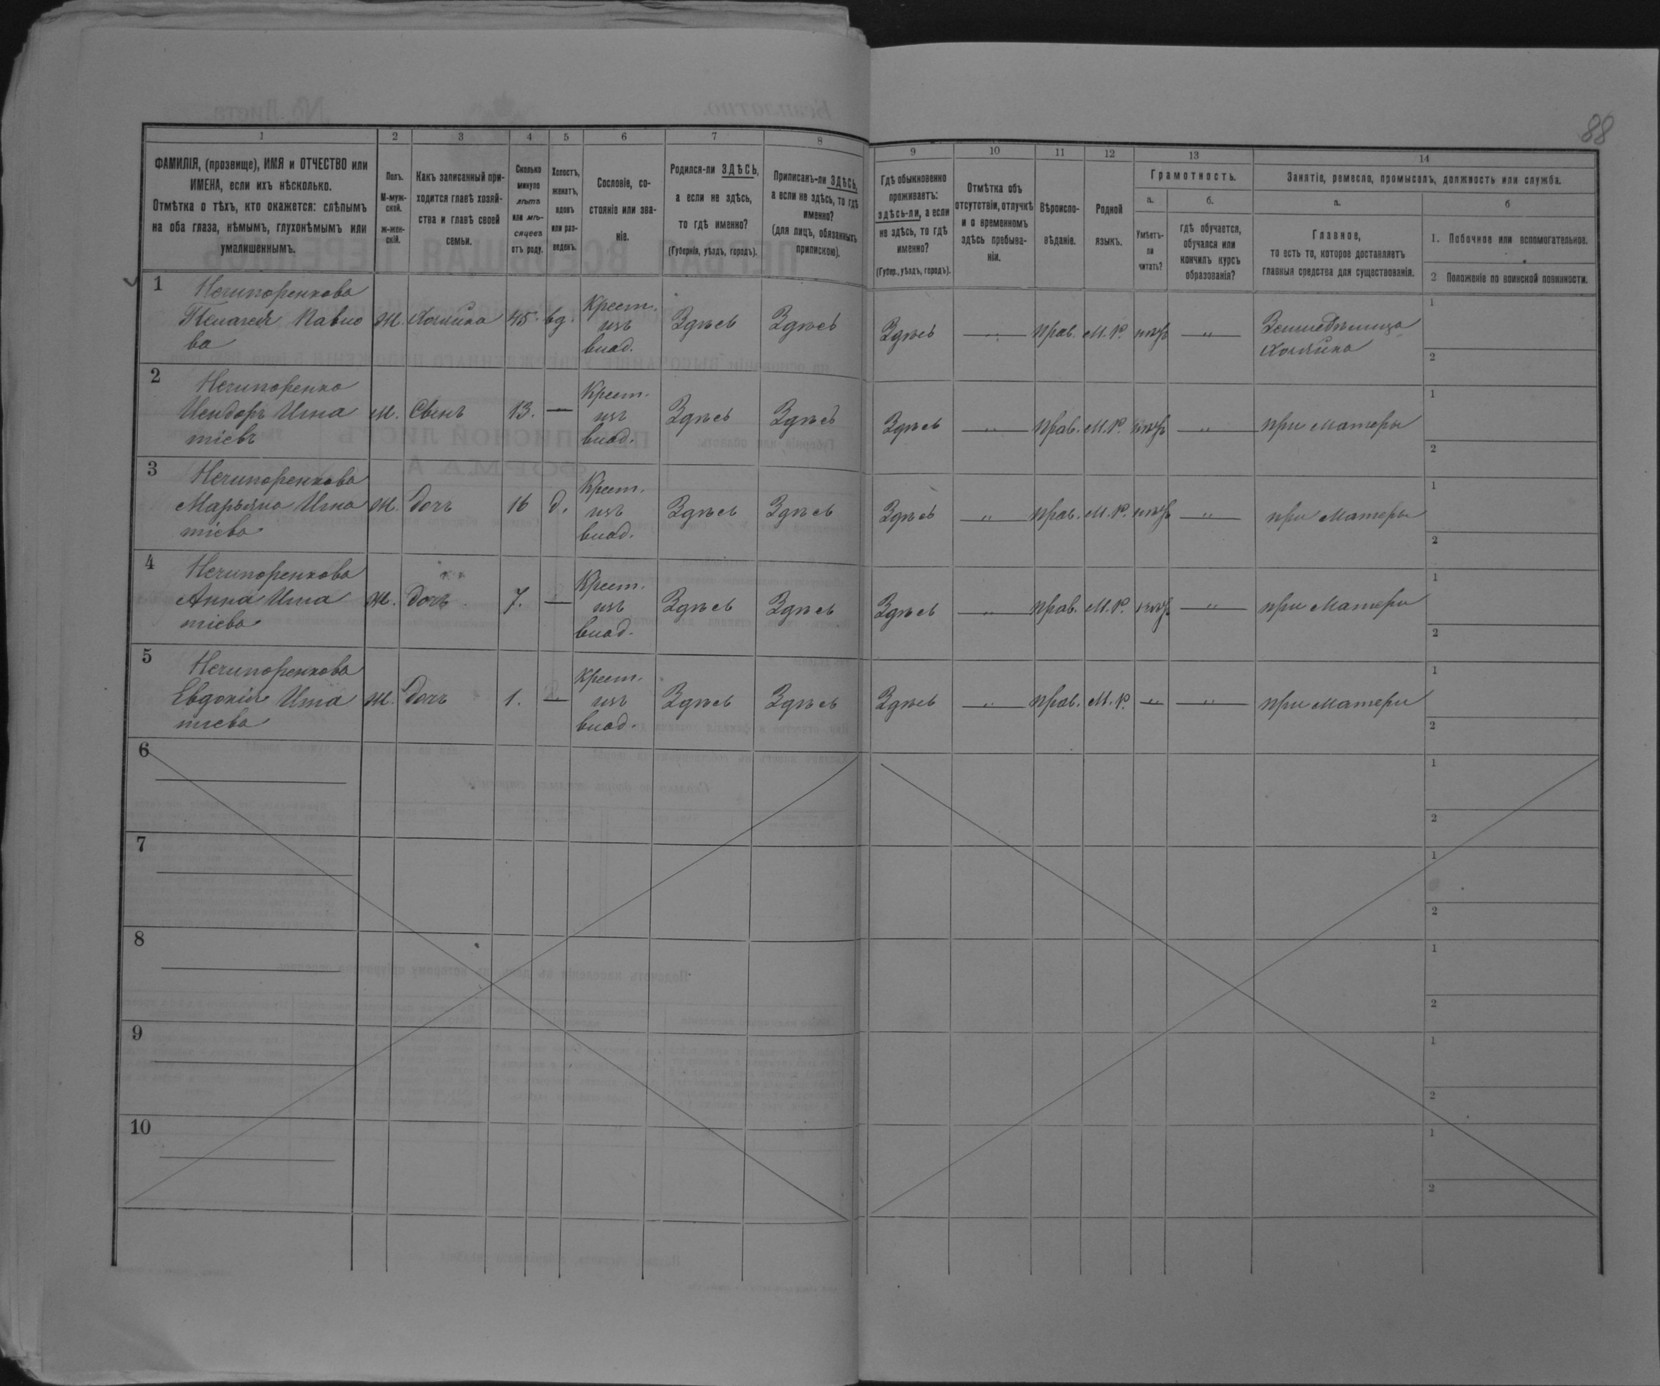 88
1
2
3
4
5
6
7
8
9
10
11
12
13
14
ФАМИЛІЯ, (прозвище), ИМЯ и ОТЧЕСТВО или
ИМЕНА, если ихъ нѣсколько.
Отмѣтка о тѣхъ, кто окажется: слѣпымъ
на оба глаза, нѣмымъ, глухонѣмымъ или
умалишеннымъ.
Полъ.
М-муж-
ской.
Ж-жен-
скій.
Какъ записанный при-
ходится главѣ хозяй-
ства и главѣ своей
семьи.
Сколько
минуло
лѣтъ
или мѣ-
сяцевъ
отъ роду.
Холостъ,
женатъ,
вдовъ
или раз-
веденъ.
Сословіе, со-
стояніе или зва-
ніе.
Родился-ли ЗДѢСЬ,
а если не здѣсь,
то гдѣ именно?
(Губернія, уѣздъ, городъ).
Приписанъ-ли ЗДѢСЬ,
а если не здѣсь, то гдѣ
именно?
(для лицъ, обязанныхъ
припискою).
Гдѣ обыкновенно
проживаетъ:
здѣсь-ли, а если
не здѣсь, то гдѣ
именно?
(Губер., уѣздъ, городъ).
Отмѣтка объ
отсутствіи, отлучкѣ
и о временномъ
здѣсь пребыва-
ніи.
Вѣроиспо-
вѣданіе.
Родной
языкъ.
Грамотность.
а.
Умѣетъ-
ли
читать?
б.
гдѣ обучается,
обучался или
кончилъ курсъ
образованія?
Занятіе, ремесло, промыселъ, должность или служба.
а.
Главное,
то есть то, которое доставляетъ
главныя средства для существованія.
б
1. Побочное или вспомогательное.
2 Положеніе по воинской повинности.
1
Нечипоренкова
Пелагея Павло
ва
Ж.
Хозяйка
45.
вд.
Крест.
изъ
влад.
Здѣсь
Здѣсь
Здѣсь
"
Прав.
М.Р.
"
Земледѣлица
Хозяйка
1
2
2
Нечипоренко
Исидоръ Игна
тіевъ
М.
Сынъ
13.
—
Крест.
изъ
влад.
Здѣсь
Здѣсь
Здѣсь
"
Прав.
М.Р.
"
при Матери
1
2
3
Нечипоренкова
Марьяна Игна
тіева
Ж.
Дочь
16
д.
Крест.
изъ
влад.
Здѣсь
Здѣсь
Здѣсь
"
Прав.
М.Р.
"
при Матери
1
2
4
Нечипоренкова
Анна Игна
тіева
Ж.
Дочь
7.
—
Крест.
изъ
влад.
Здѣсь
Здѣсь
Здѣсь
"
Прав.
М.Р.
"
при Матери
1
2
5
Нечипоренкова
Евдокія Игна
тіева
Ж.
Дочь
1.
—
Крест.
изъ
влад.
Здѣсь
Здѣсь
Здѣсь
"
Прав.
М.Р.
"
"
при Матери
1
2
6
1
2
7
1
2
8
1
2
9
1
2
10
1
2